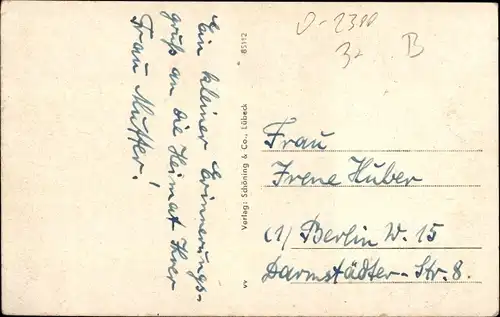 Ein kleiner Erinnerungs-
gruß an die Heimat Ihrer
Frau Mutter!
85112
Verlag: Schöning & Co., Lübeck
D-2300
3,-
B
Frau
Irene Huber
(1) Berlin W. 15
Darmstädter-Str. 8.